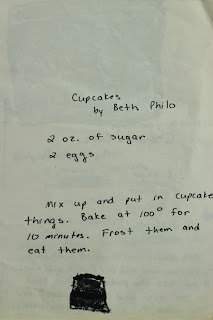 Cupcakes
by Beth Philo
2 oz. of sugar
2 eggs
Mix up and put in cupcake
things. Bake at 100° for
10 minutes. Frost them and
eat them.